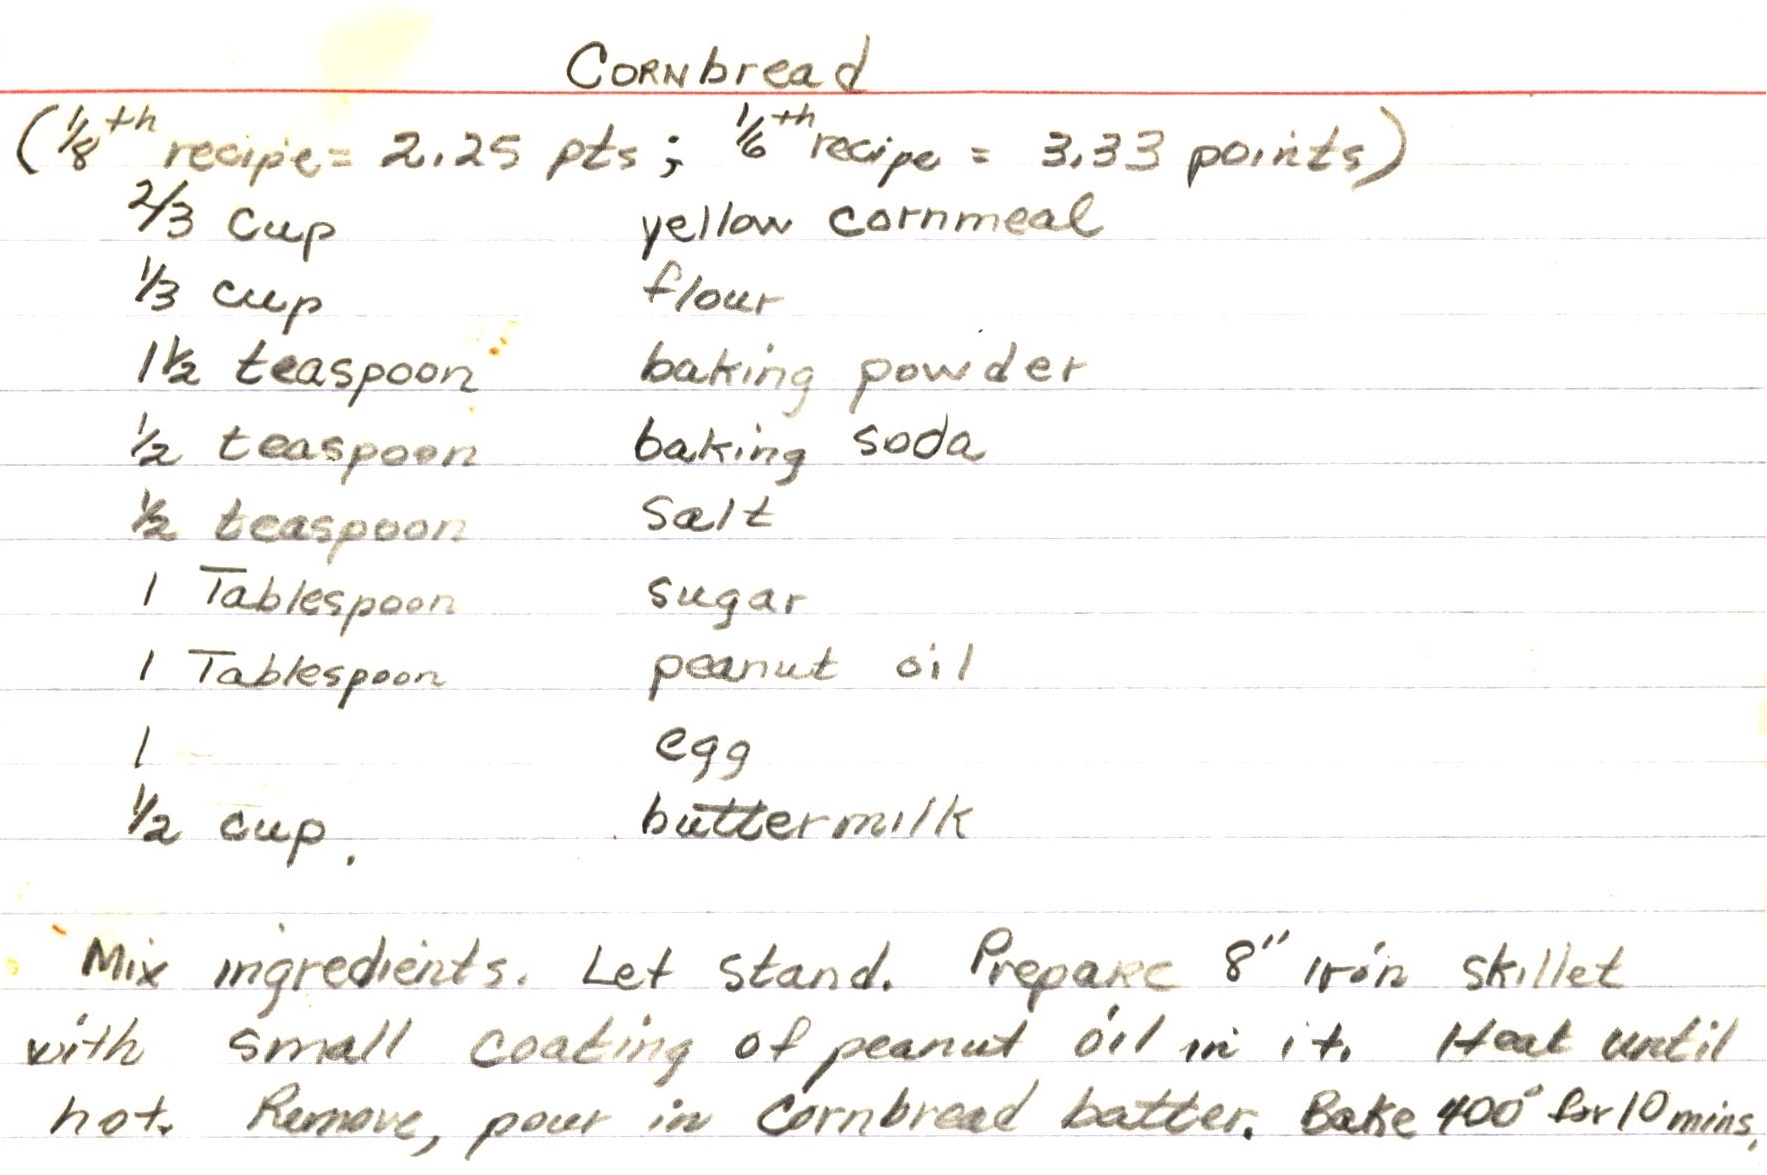 Cornbread
(1/8th recipe = 2.25 pts; 1/6th recipe = 3.33 points)
2/3 cup yellow cornmeal
1/3 cup flour
1 1/2 teaspoon baking powder
1/2 teaspoon baking soda
1/2 teaspoon salt
1 Tablespoon sugar
1 Tablespoon peanut oil
1 egg
1/2 cup. buttermilk
Mix ingredients. Let stand. Prepare 8" iron skillet
with small coating of peanut oil in it. Heat until
hot. Remove, pour in cornbread batter. Bake 400° for 10 mins.